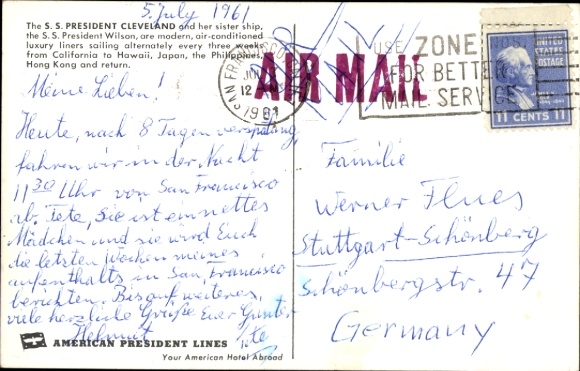 5. July 1961
The S. S. PRESIDENT CLEVELAND and her sister ship,
the S. S. President Wilson, are modern, air-conditioned
luxury liners sailing alternately every three weeks
from California to Hawaii, Japan, the Philippines,
Hong Kong and return.
Meine Lieben!
Heute, nach 8 Tagen verspätung,
fahren wir in der Nacht
11 30 Uhr von San Francisco
ab. Fete, Sie ist ein nettes
Mädchen und sie wird Euch
die letzten Wochen meines
aufenthalts in San Francisco
berichten. Bis auf weiteres,
viele herzliche Grüße Euer Günter
Helmut
AMERICAN PRESIDENT LINES
Your American Hotel Abroad
SAN FRANCISCO
JUL
12 AM
1961
AIR MAIL
USE ZONE NO.
FOR BETTER
MAIL SERVICE
UNITED
STATES
POSTAGE
11 CENTS 11
Familie
Werner Flues
Stuttgart-Schönberg
Schönbergstr. 47
Germany